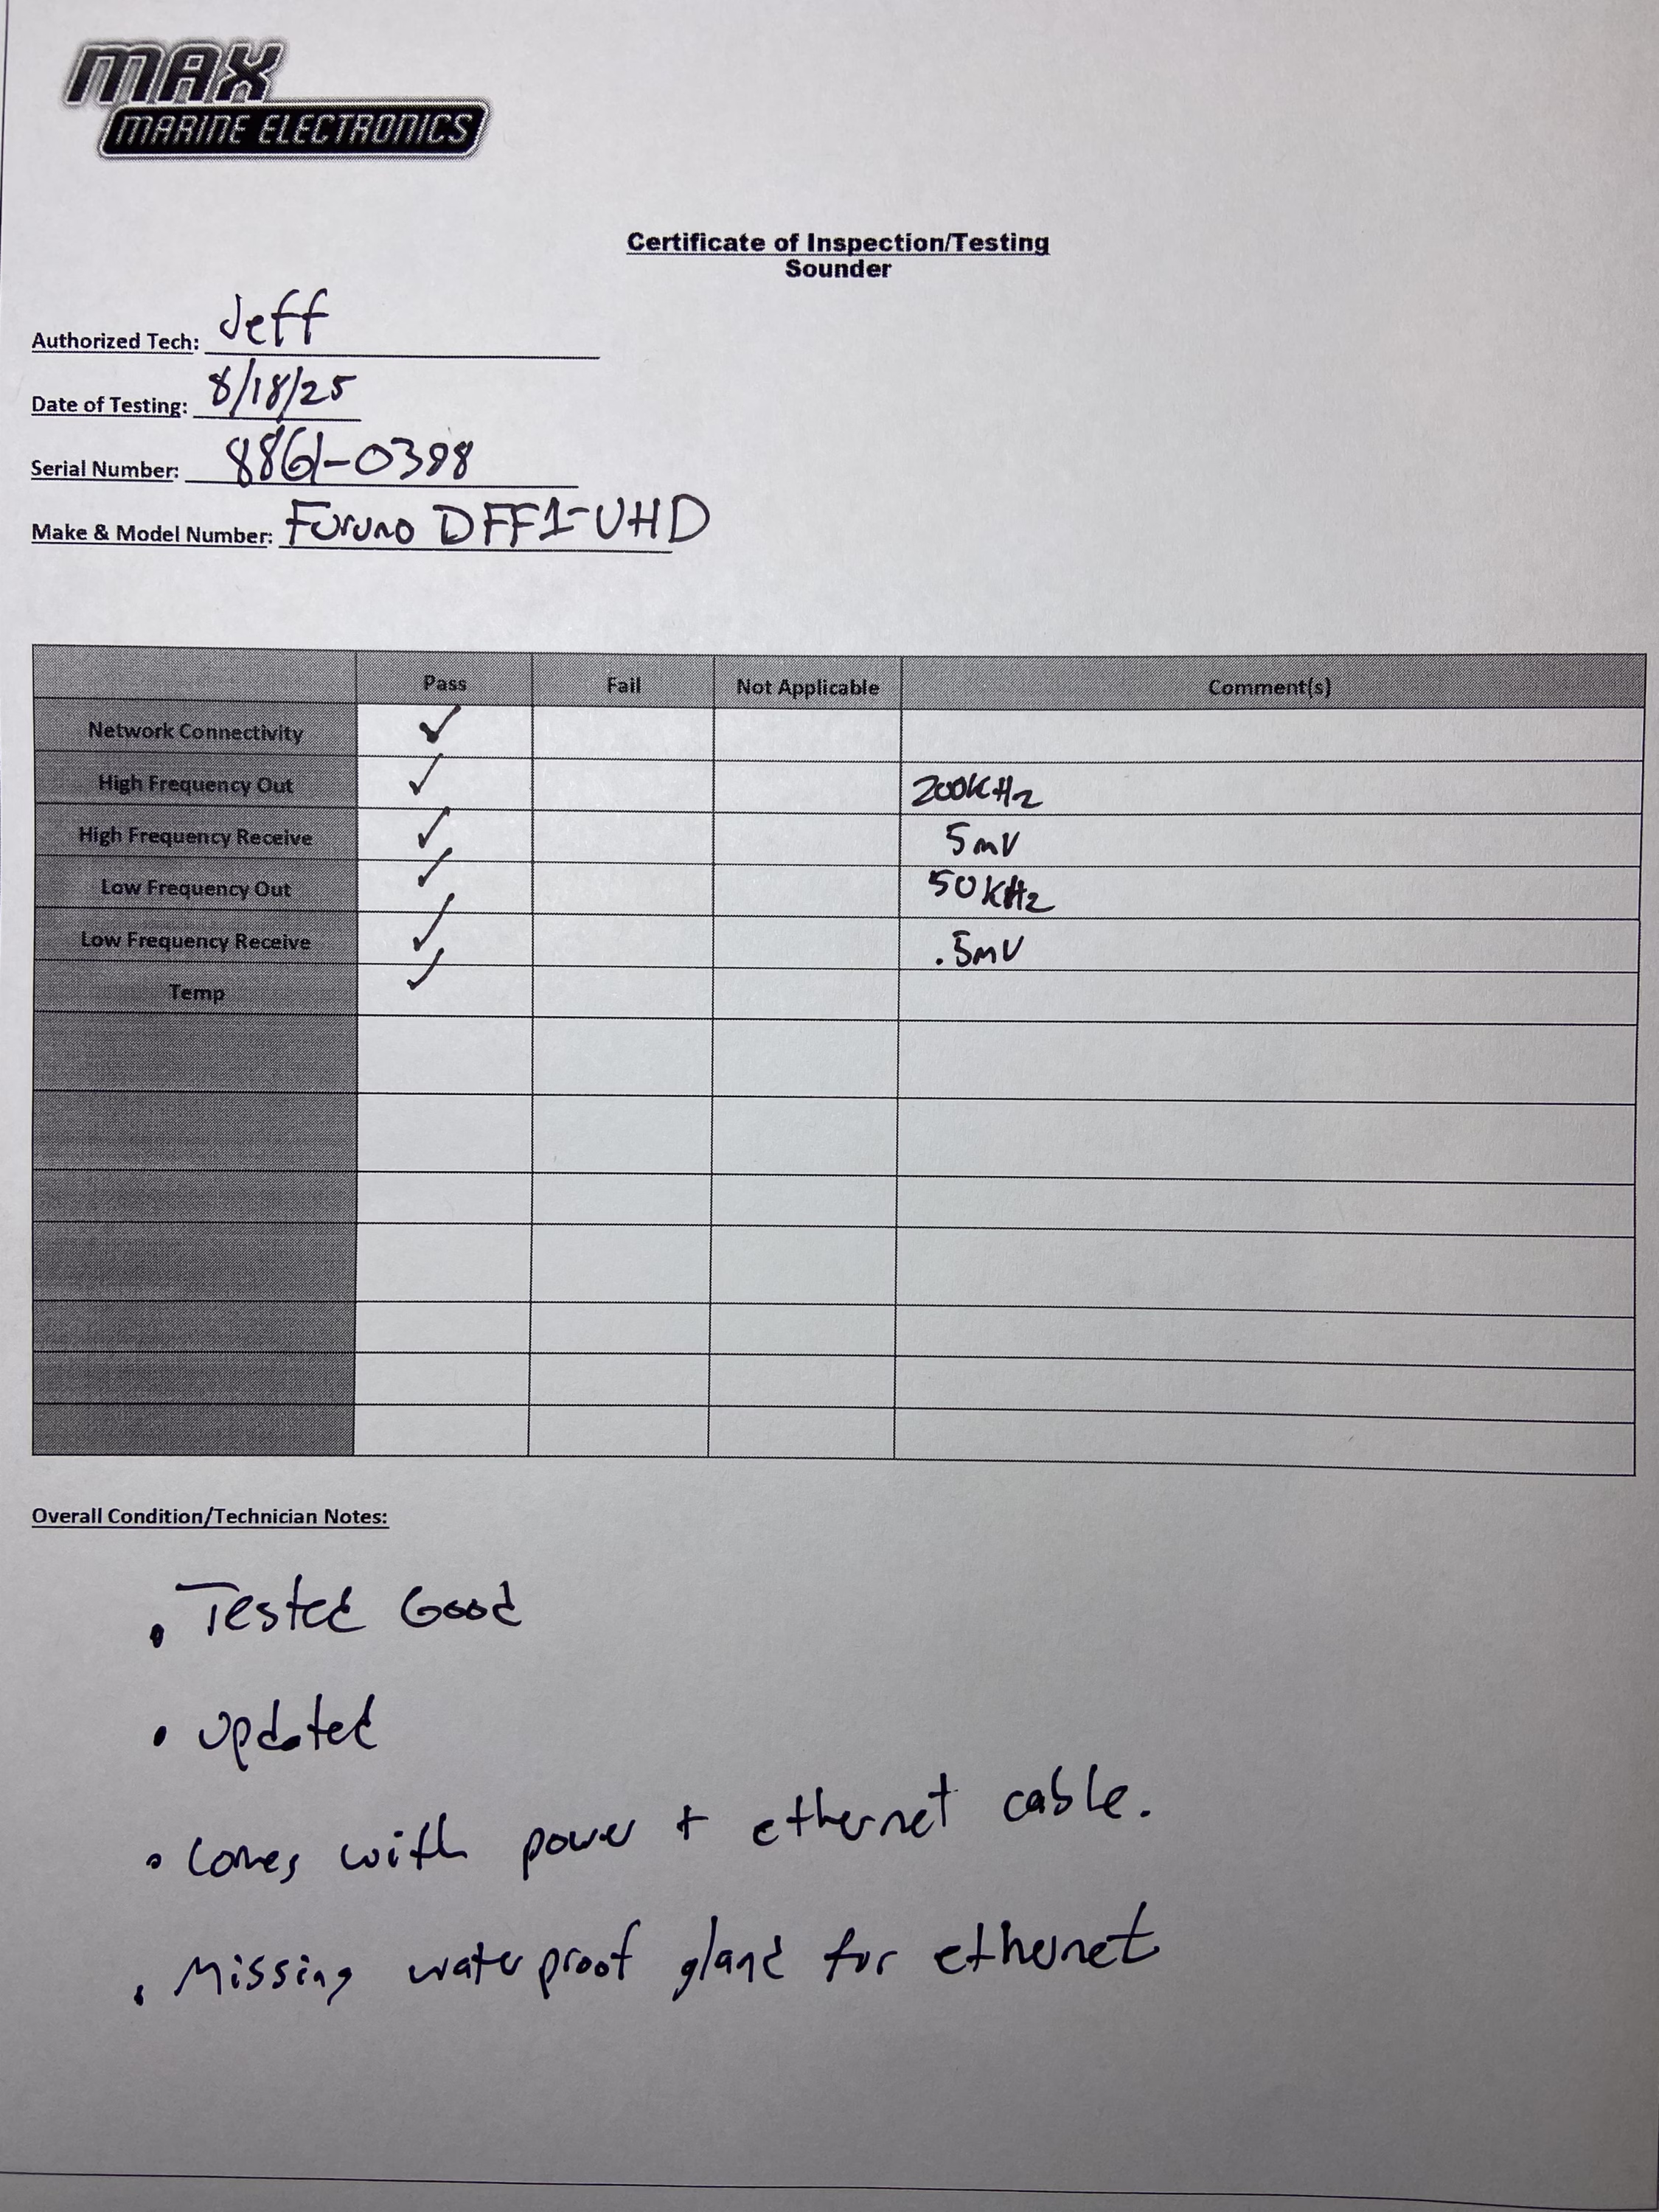 MAX
MARINE ELECTRONICS
Certificate of Inspection/Testing
Sounder
Authorized Tech: Jeff
Date of Testing: 8/18/25
Serial Number: 8861-0398
Make & Model Number: Furuno DFF1-UHD
Pass Fail Not Applicable Comment(s)
Network Connectivity ✓
High Frequency Out ✓ 200KHz
High Frequency Receive ✓ 5mV
Low Frequency Out ✓ 50KHz
Low Frequency Receive ✓ .5mV
Temp ✓
Overall Condition/Technician Notes:
• Tested Good
• Updated
• Comes with power + ethernet cable.
• Missing waterproof gland for ethernet